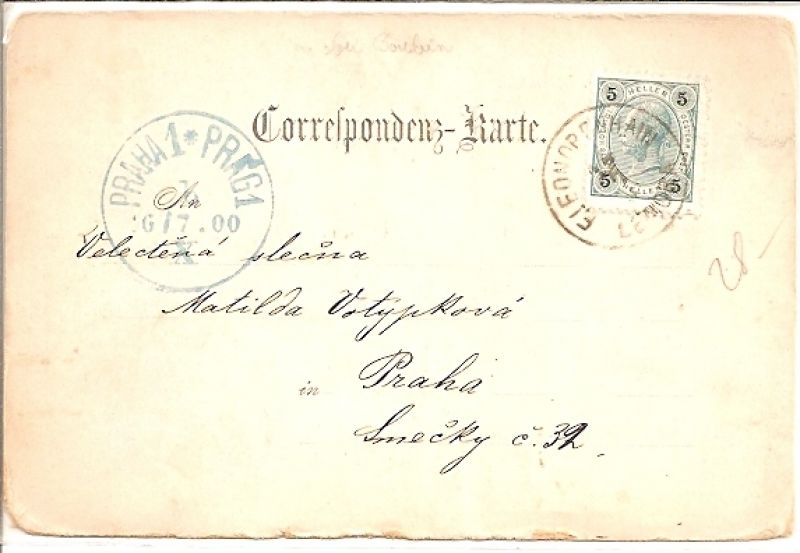 Correspondenz-Karte.
5 HELLER 5
5 HELLER 5
PRAHA 1 * PRAG 1
6/7.00
X
An
Velectěná slečna
Matilda Votýpková
in Praha
Smečky č. 32
28-